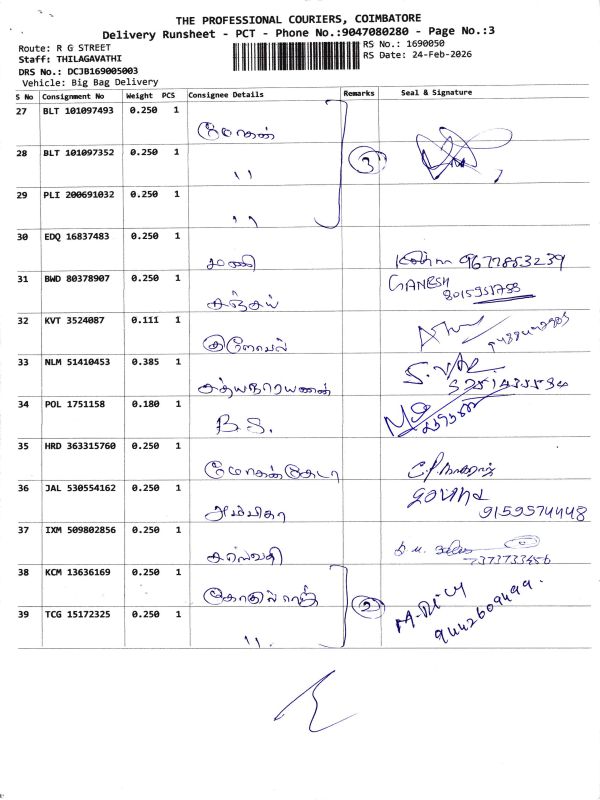 THE PROFESSIONAL COURIERS, COIMBATORE
Delivery Runsheet - PCT - Phone No.:9047080280 - Page No.:3
Route: R G STREET
RS No.: 1690050
Staff: THILAGAVATHI
RS Date: 24-Feb-2026
DRS No.: DCJB169005003
Vehicle: Big Bag Delivery
S No Consignment No Weight PCS Consignee Details Remarks Seal & Signature
27 BLT 101097493 0.250 1 மோகன்
28 BLT 101097352 0.250 1 " 3
29 PLI 200691032 0.250 1 "
30 EDQ 16837483 0.250 1 மணி 9677853239
31 BWD 80378907 0.250 1 சஞ்சய் GANESH
32 KVT 3524087 0.111 1
33 NLM 51410453 0.385 1 சத்யநாராயணன்
34 POL 1751158 0.180 1 B.S.
35 HRD 363315760 0.250 1
36 JAL 530554162 0.250 1 அம்பிகா 9159574448
37 IXM 509802856 0.250 1 7373733456
38 KCM 13636169 0.250 1 2
39 TCG 15172325 0.250 1 " 9442609499